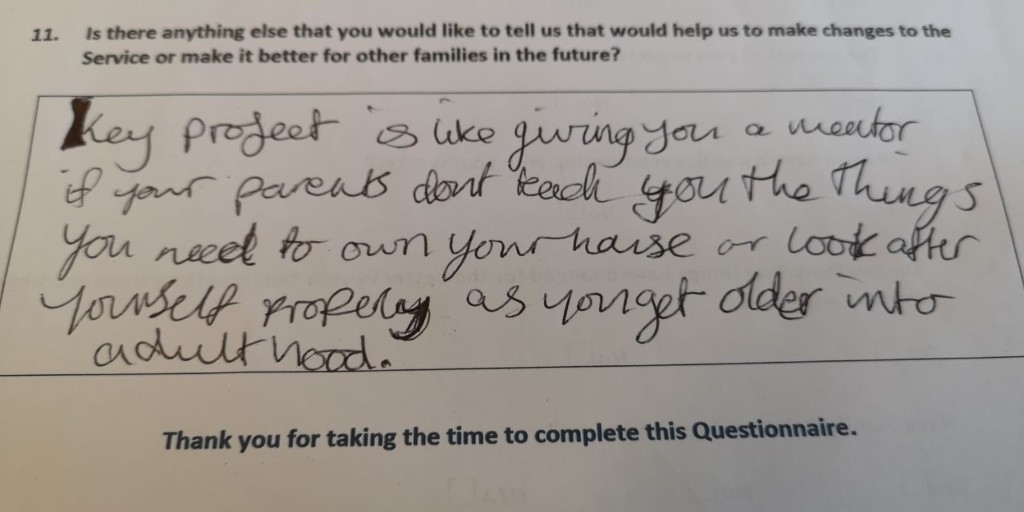 11. Is there anything else that you would like to tell us that would help us to make changes to the
Service or make it better for other families in the future?
Key project is like giving you a mentor
if your parents dont teach you the things
you need to own your house or look after
yourself properly as you get older into
adult hood.
Thank you for taking the time to complete this Questionnaire.